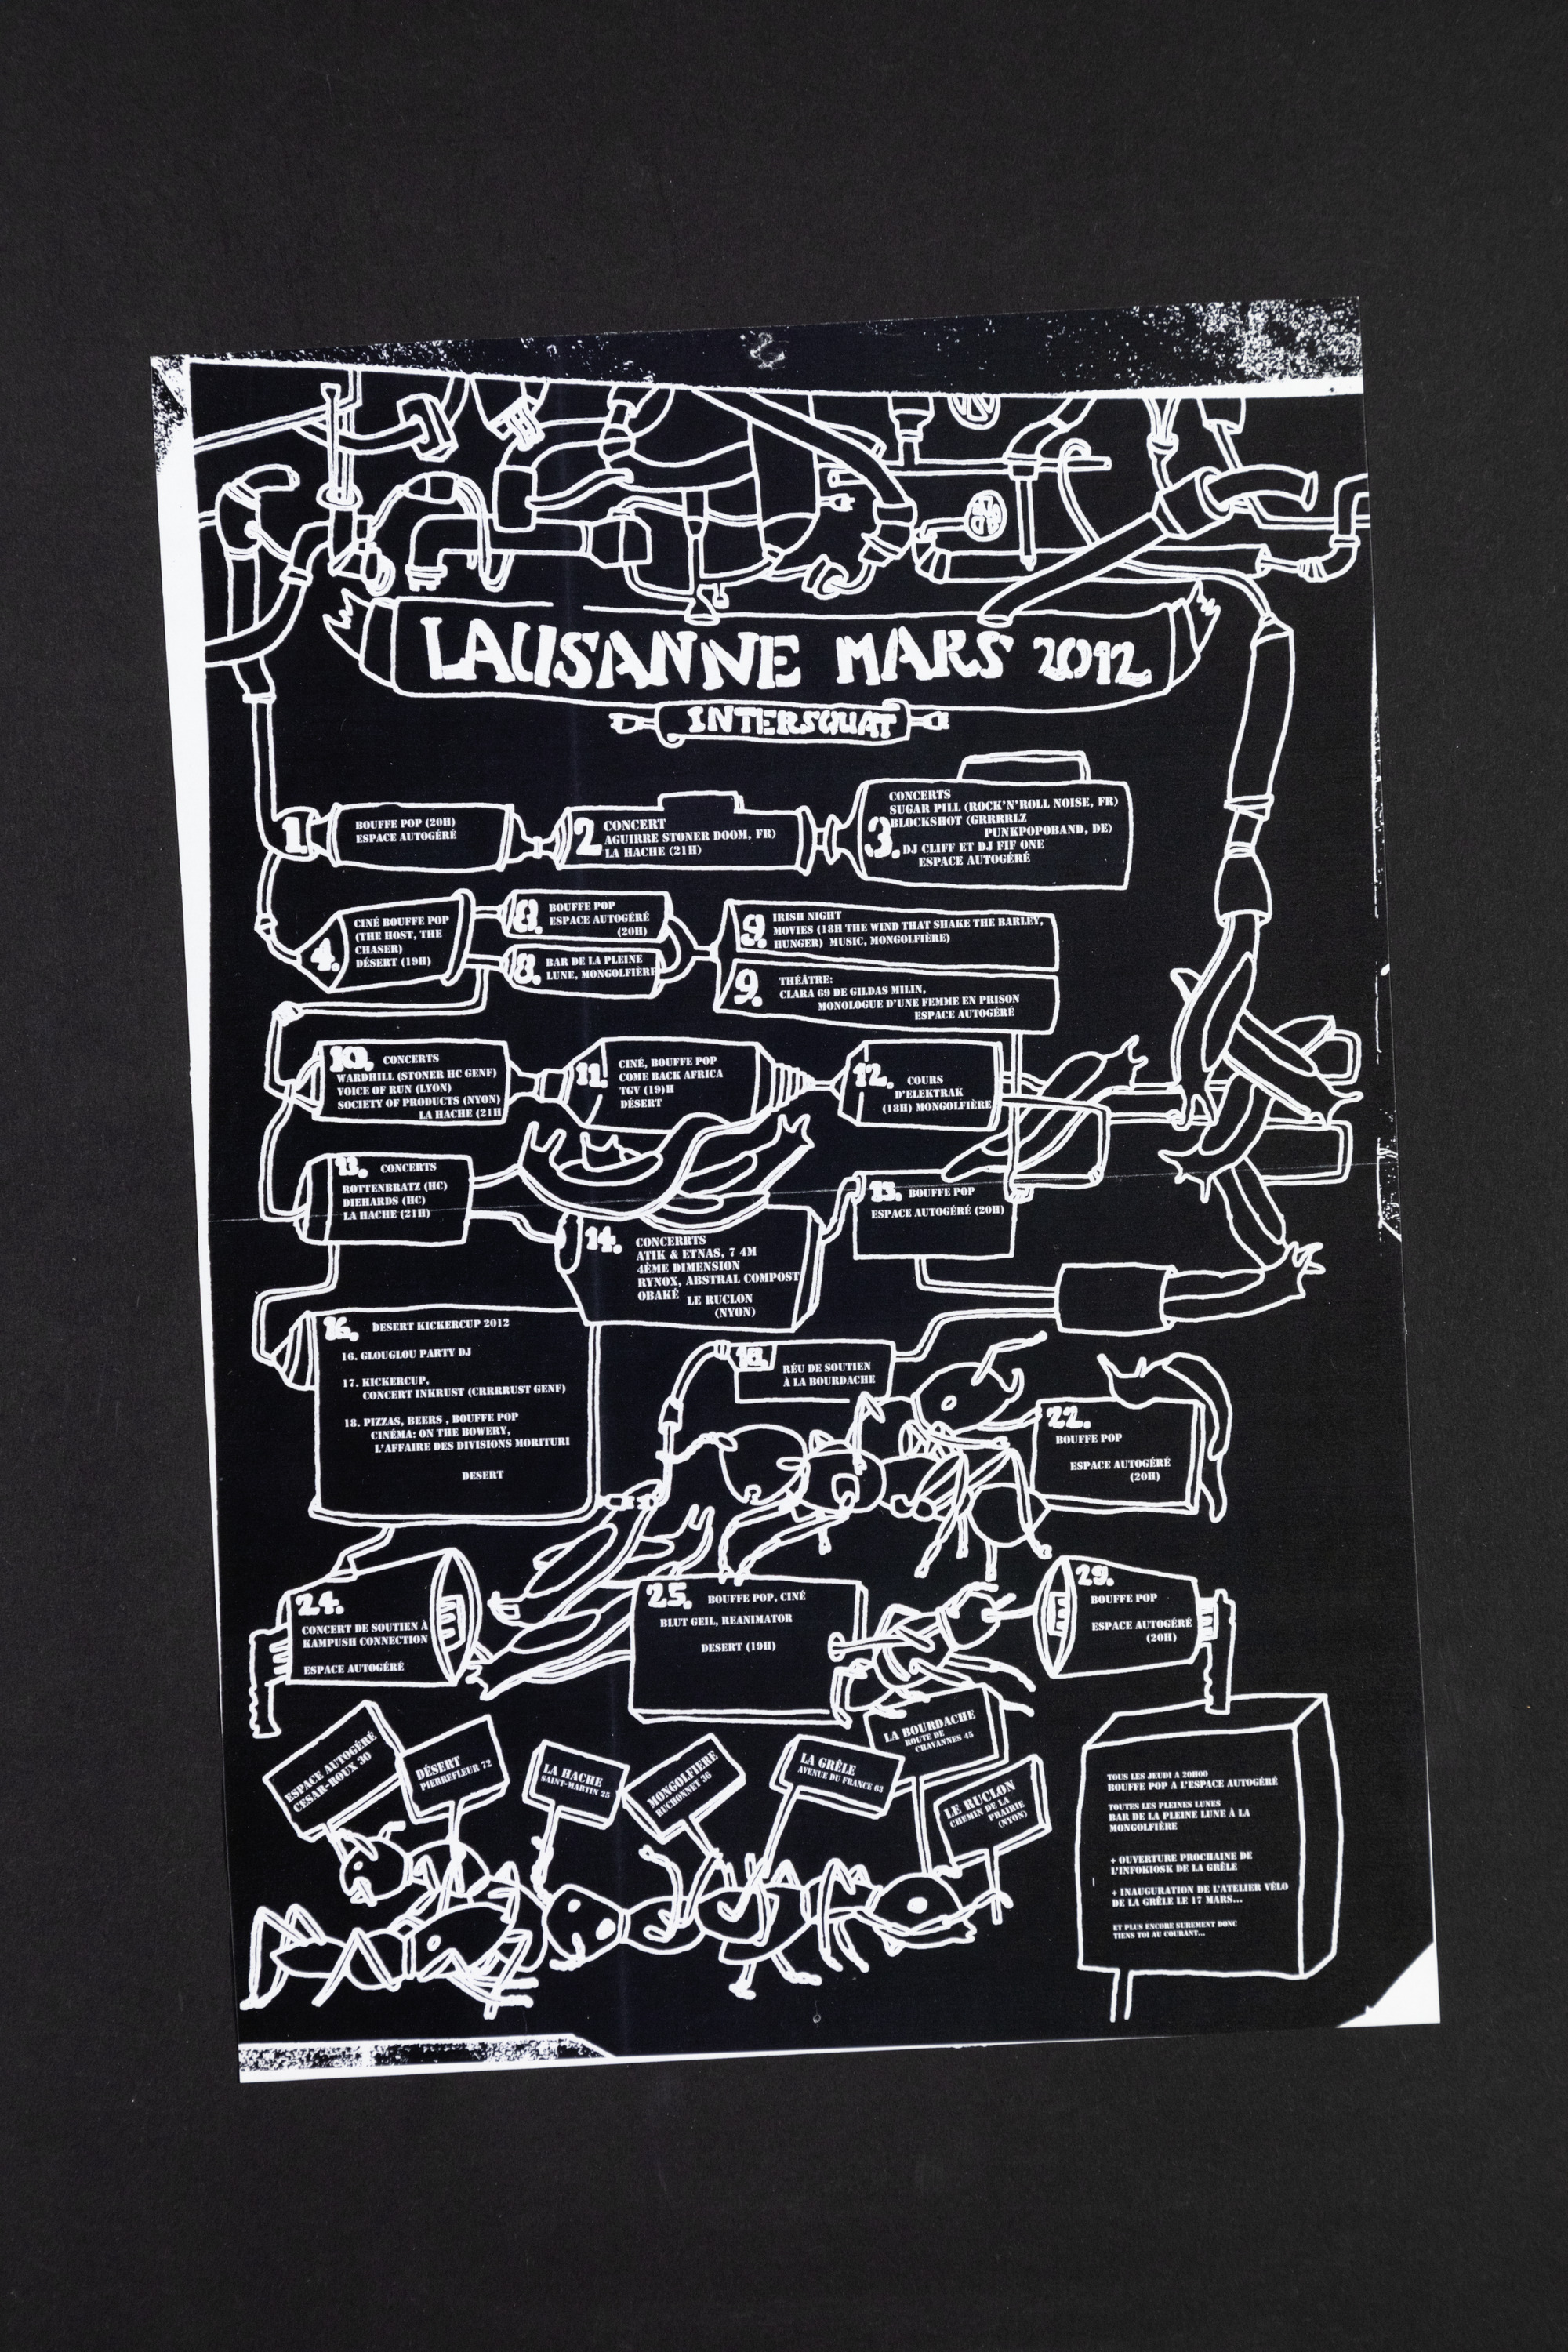 LAUSANNE MARS 2012
INTERSQUAT
1.
BOUFFE POP (20H)
ESPACE AUTOGÉRÉ
2
CONCERT
AGUIRRE STONER DOOM, FR)
LA HACHE (21H)
3.
CONCERTS
SUGAR PILL (ROCK'N'ROLL NOISE, FR)
BLOCKSHOT (GRRRRLZ
PUNKPOPOBAND, DE)
DJ CLIFF ET DJ FIF ONE
ESPACE AUTOGÉRÉ
4.
CINÉ BOUFFE POP
(THE HOST, THE
CHASER)
DÉSERT (19H)
8.
BOUFFE POP
ESPACE AUTOGÉRÉ
(20H)
8.
BAR DE LA PLEINE
LUNE, MONGOLFIÈRE
9.
IRISH NIGHT
MOVIES (18H THE WIND THAT SHAKE THE BARLEY,
HUNGER) MUSIC, MONGOLFIÈRE)
9.
THÉÂTRE:
CLARA 69 DE GILDAS MILIN,
MONOLOGUE D'UNE FEMME EN PRISON
ESPACE AUTOGÉRÉ
10.
CONCERTS
WARDHILL (STONER HC GENF)
VOICE OF RUN (LYON)
SOCIETY OF PRODUCTS (NYON)
LA HACHE (21H
11.
CINÉ, BOUFFE POP
COME BACK AFRICA
TGV (19)H
DÉSERT
12.
COURS
D'ELEKTRAK
(18H) MONGOLFIÈRE
13.
CONCERTS
ROTTENBRATZ (HC)
DIEHARDS (HC)
LA HACHE (21H)
14.
CONCERRTS
ATIK & ETNAS, 7 4M
4ÈME DIMENSION
RYNOX, ABSTRAL COMPOST
OBAKÉ
LE RUCLON
(NYON)
15.
BOUFFE POP
ESPACE AUTOGÉRÉ (20H)
16.
DESERT KICKERCUP 2012
16. GLOUGLOU PARTY DJ
17. KICKERCUP,
CONCERT INKRUST (CRRRRUST GENF)
18. PIZZAS, BEERS , BOUFFE POP
CINÉMA: ON THE BOWERY,
L'AFFAIRE DES DIVISIONS MORITURI
DESERT
18.
RÉU DE SOUTIEN
À LA BOURDACHE
22.
BOUFFE POP
ESPACE AUTOGÉRÉ
(20H)
24.
CONCERT DE SOUTIEN À
KAMPUSH CONNECTION
ESPACE AUTOGÉRÉ
25.
BOUFFE POP, CINÉ
BLUT GEIL, REANIMATOR
DESERT (19H)
29.
BOUFFE POP
ESPACE AUTOGÉRÉ
(20H)
ESPACE AUTOGÉRÉ
CESAR-ROUX 30
DÉSERT
PIERREFLEUR 72
LA HACHE
SAINT-MARTIN 25
MONGOLFIERE
RUCHONNET 36
LA GRÊLE
AVENUE DU FRANCE 63
LA BOURDACHE
ROUTE DE
CHAVANNES 45
LE RUCLON
CHEMIN DE LA
PRAIRIE
(NYON)
TOUS LES JEUDI A 20H00
BOUFFE POP A L'ESPACE AUTOGÉRÉ
TOUTES LES PLEINES LUNES
BAR DE LA PLEINE LUNE À LA
MONGOLFIÈRE
+ OUVERTURE PROCHAINE DE
L'INFOKIOSK DE LA GRÊLE
+ INAUGURATION DE L'ATELIER VÉLO
DE LA GRÊLE LE 17 MARS...
ET PLUS ENCORE SUREMENT DONC
TIENS TOI AU COURANT...